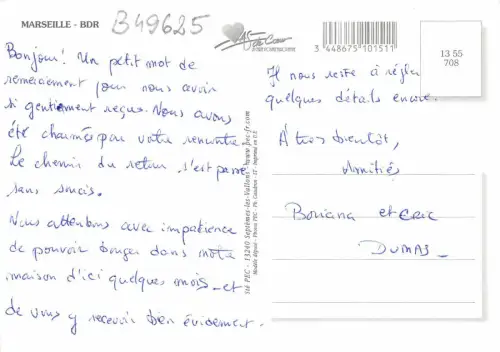 MARSEILLE - BDR
B49625
Bonjour! Un petit mot de
remerciement pour nous avoir
si gentiement reçus. Nous avons
été charmés par votre rencontre.
Le chemin du retour s'est passé
sans soucis.
Nous attendons avec impatience
de pouvoir bouger dans notre
maison d'ici quelques mois - et
de vous y recevoir bien évidement.
3 448675 101511
13 55
708
Il nous reste à régler
quelques détails encore.
À très bientôt,
Amitiés
Boriana et Eric
DUMAS
Sté PEC - 13240 Septèmes-les-Vallons - www.pec-fr.com